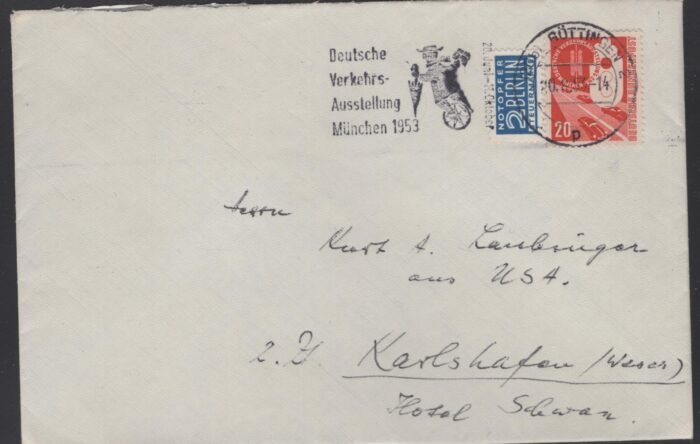 Deutsche
Verkehrs-
Ausstellung
München 1953
NOTOPFER
2 BERLIN
STEUERMARKE
GÖTTINGEN
-14
p
20
DEUTSCHE BUNDESPOST
Herrn
Kurt A. Laubinger
aus USA.
z. Zt. Karlshafen (Weser)
Hotel Schwan.